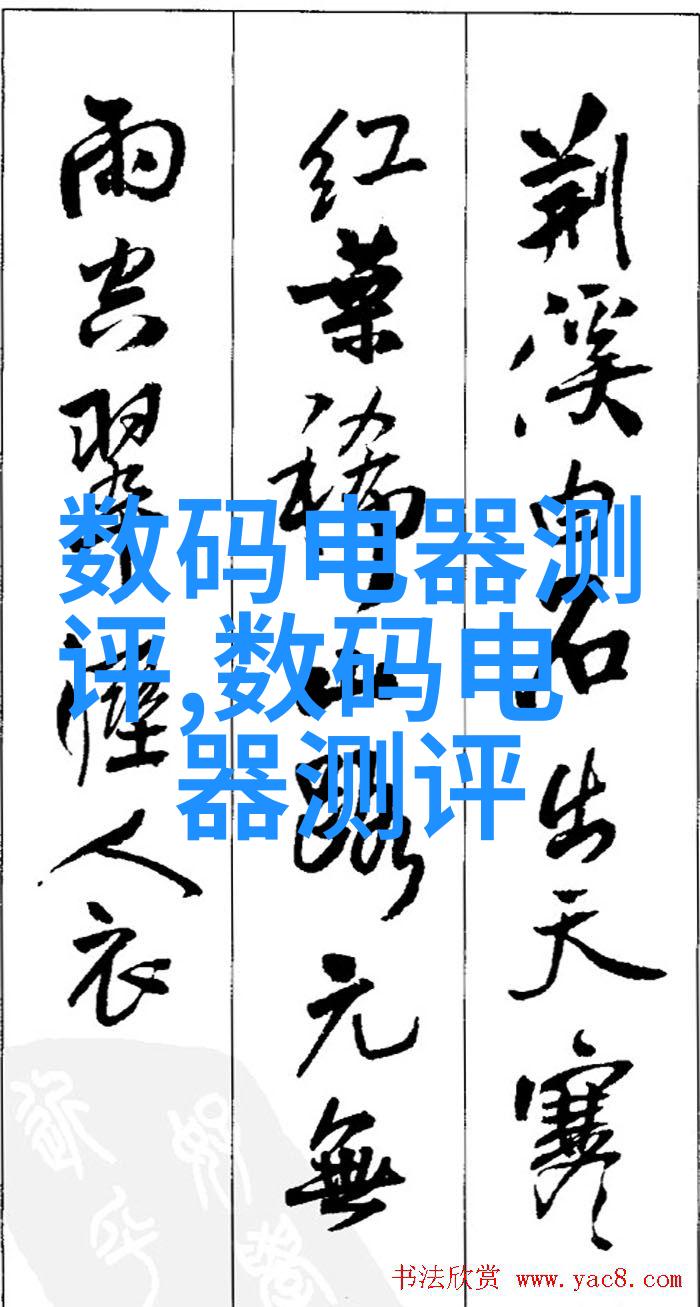 荆溪白石出天寒
红葉稀山路元無
雨空翠濕人衣
数码电器测
评,数码电
器测评
书法欣赏 www.yac8.com